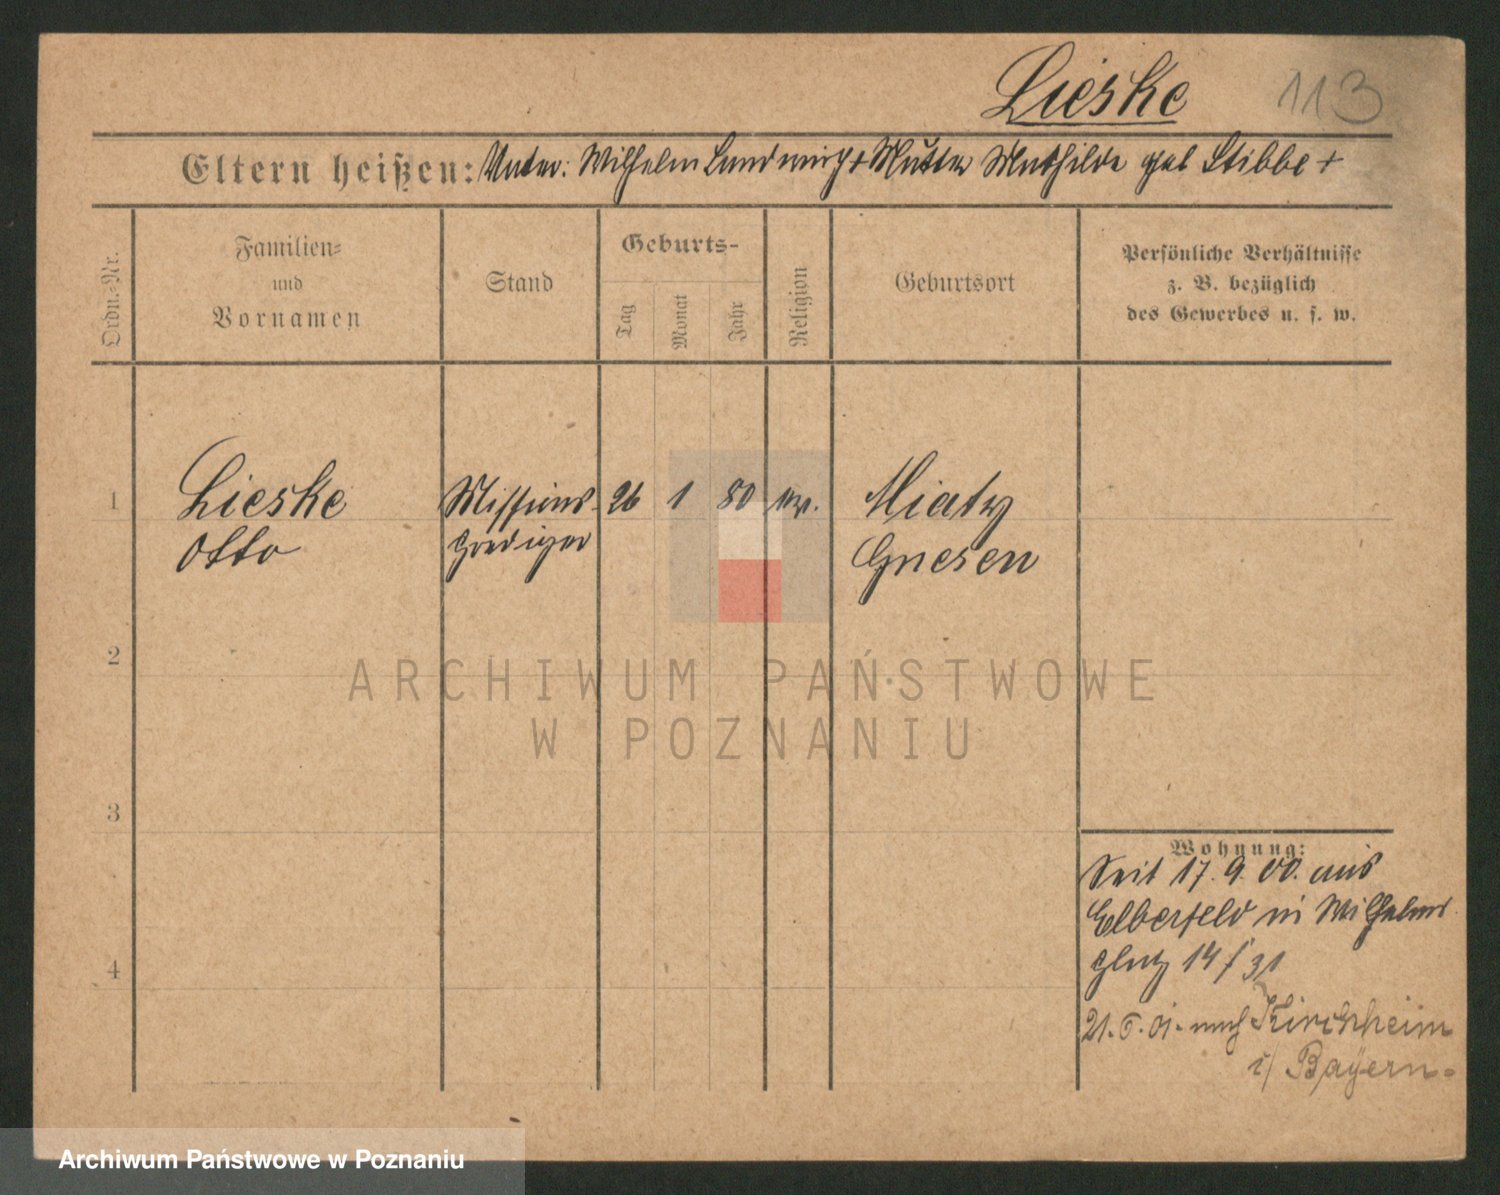 Lieske 113
Eltern heißen: Vater: Wilhelm Landwirth + Mutter Mathilde geb Stibbe +
Ordn.-Nr.
Familien-
und
Vornamen
Stand
Geburts-
Tag
Monat
Jahr
Religion
Geburtsort
Persönliche Verhältnisse
z. B. bezüglich
des Gewerbes u. s. w.
1 Lieske Missions- 26 1 80 ev. Miaty
Otto prediger Gnesen
2
ARCHIWUM PAŃSTWOWE
W POZNANIU
3
Wohnung:
Seit 17.9.00. aus
Elberfeld in Wilhelms
4 platz 14 / 31
21.5.01. nach Kirchheim
i/ Bayern.
Archiwum Państwowe w Poznaniu